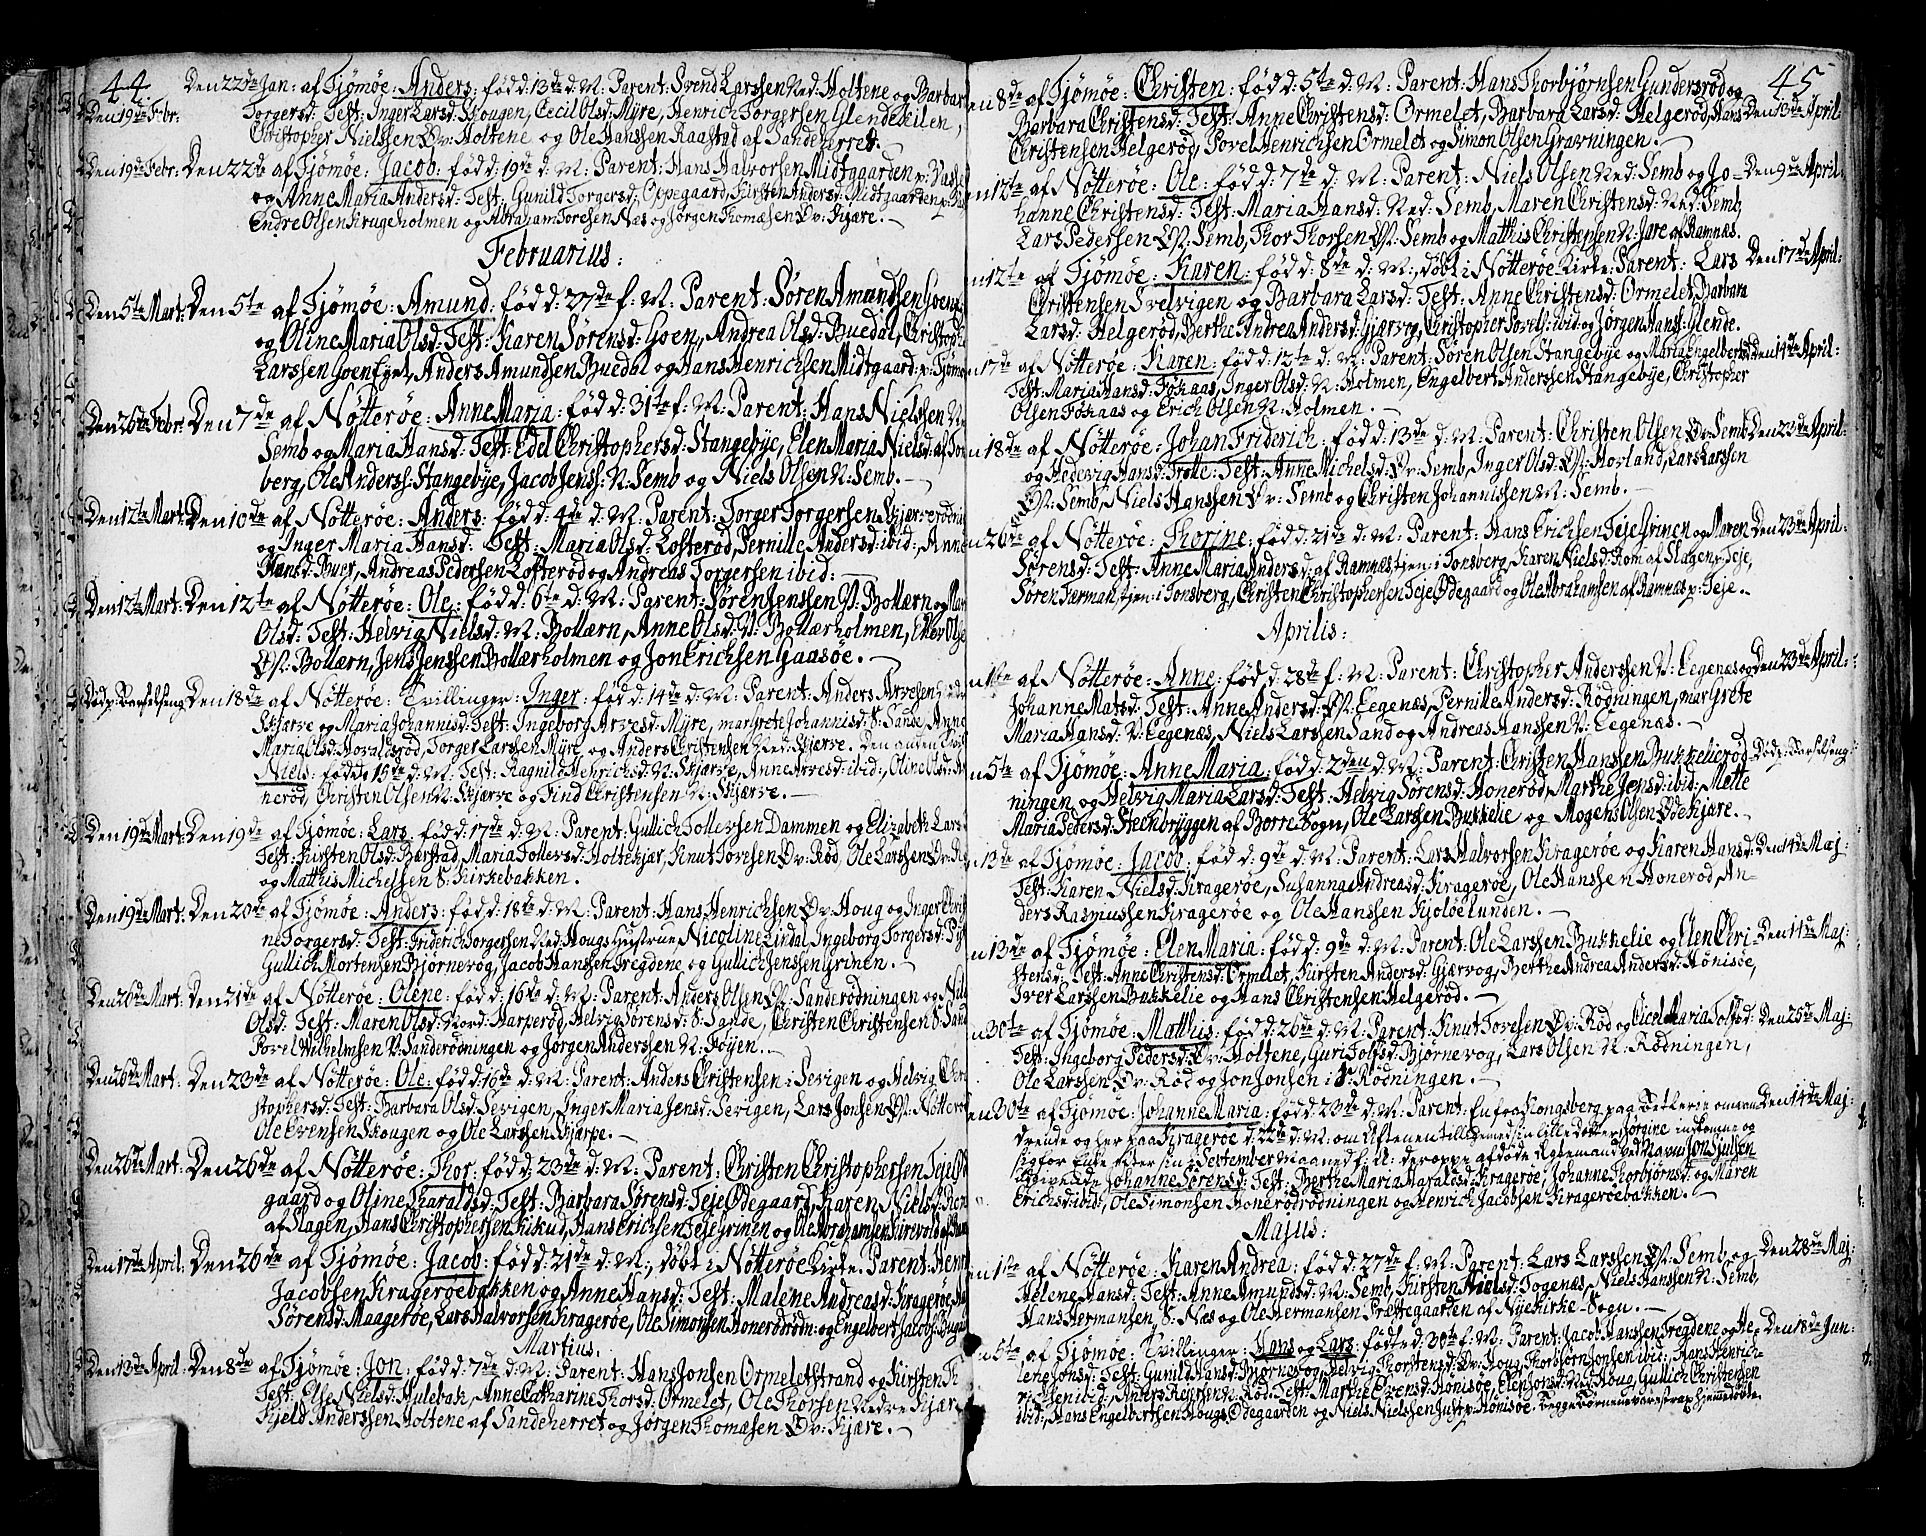 44
Den 22de Jan: af Tjömöe: Anders: född: 13de d: M: Parent: Svend Larssen Ned: Holtene og Barbar
Den 19de Febr: Torgersd: Test: Inger Larsd: Skougen, Cecil Olsd: Myre, Henrich Torgersen Glendekilen,
Christopher Nielssen Öv: Holtene og Ole Hanssen Raastad af Sandeherret.
Den 19de Febr: Den 22de af Tjömöe: Jacob: född: 19de d: M: Parent: Hans Halvorsen Midtgaarden p:
og Anne Maria Andersd: Test: Gunild Torgersd: Oppegaard, Kirsten Andersd: Midtgaarden p:
Endre Olsen Krugeholmen og Abraham Toresen Næs og Jörgen Thomæsen Öv: Kjære.
Februarius:
Den 5te Mart: Den 5te af Tjömöe: Amund: född: 27de f: M: Parent: Sören Amundsen Goen
og Oline Maria Olsd: Test: Karen Sörensd: Goen, Andrea Olsd: Buedal, Christoph
Larssen Goen Eyet, Anders Amundsen Buedal og Hans Henrichsen Midtgaard p: Tjömö
Den 26de Febr: Den 7de af Nötteröe: Anne Maria: född: 31te f: M: Parent: Hans Nielssen N:
Semb og Maria Hansd: Test: Edel Christophersd: Stangebye, Elen Maria Nielsd: af Töns
berg, Ole Anderss: Stangebye, Jacob Jenss: N: Semb og Niels Olsen N: Semb.
Den 12te Mart: Den 10de af Nötteröe: Anders: född: 4de d: M: Parent: Torger Torgersen Skjærrerödni
og Inger Maria Hansd: Test: Maria Olsd: Lofteröd, Pernille Andersd: ibid:, Anne
Hansd: Buer, Andreas Pedersen Lofteröd og Andreas Torgersen ibid:
Den 12te Mart: Den 12te af Nötteröe: Ole: född: 6te d: M: Parent: Sören Jenssen V: Bollærn og Mar
Olsd: Test: Helvig Nielsd: M: Bollærn, Anne Olsd: V: Bollærholmen, Ellev Ols
Öst: Bollærn, Jens Jenssen Bollærholmen og Jon Erichsen Gaasöe.
Död p: Barselseng Den 18de af Nötteröe: Tvillinger: Inger: född: 14de d: M: Parent: Anders Arvesen
Skjærve og Maria Johannisd: Test: Ingeborg Arvesd: Myre, Margrete Johannisd: S: Sande, Anne
Maria Olsd: Horaldsröd, Torger Larssen Myre og Anders Christensen Ned: Skjærve. Den anden
Niels: född: 15de d: M: Test: Ragnild Henrichsd: N: Skjærve, Anne Arvesd: ibid:, Oline Olsd:
neröd, Christen Olsen N: Skjærve og Find Christensen N: Skjærve.
Den 19de Mart: Den 19de af Tjömöe: Lars: född: 17de d: M: Parent: Gullich Tollevsen Dammen og Elizabeth Lars
Test: Kirsten Olsd: Bærstad, Maria Tollevsd: Holtekjær, Knut Toresen Öv: Röd, Ole Larssen Öv:
og Matthis Michelssen S: Kirkebakken.
Den 19de Mart: Den 20de af Tjömöe: Anders: född: 18de d: M: Parent: Hans Henrichsen Öv: Houg og Inger Chri
ne Torgersd: Test: Friderich Torgersen Ned: Hougs Hustrue Nicoline Lindal, Ingeborg Torgersd:
Gullich Mortensen Björnevog, Jacob Hanssen Tregdene og Gullich Jenssen Grinen.
Den 26de Mart: Den 21de af Nötteröe: Olene: född: 16de d: M: Parent: Anders Olsen V: Sanderödningen og
Olsd: Test: Maren Olsd: Nord: Harperöd, Helvig Sörensd: S: Sande, Christen Christensen S: Sand
Povel Wilhelmsen V: Sanderödningen og Jörgen Anderssen N: Föyen.
Den 26de Mart: Den 23de af Nötteröe: Ole: född: 16de d: M: Parent: Anders Christensen i Sevigen og Helvig Chri
stophersd: Test: Barbara Olsd: Sevigen, Inger Maria Jensd: Sevigen, Lars Jonsen V: Nötterö
Ole Evensen Skougen og Ole Larssen Skjærpe.
Den 26de Mart: Den 26de af Nötteröe: Thor: född: 23de d: M: Parent: Christen Christophersen Teje Öde
gaard og Oline Haraldsd: Test: Barbara Sörensd: Teje Ödegaard, Karen Nielsd: Rom
af Slagen, Hans Christophersen Kikud, Hans Erichsen Teje Grinen og Ole Abrahamsen
Den 17de April: Den 26de af Tjömöe: Jacob: född: 21de d: M:, döbt i Nötteröe Kirke. Parent: Henr
Jacobsen Krageröebakken og Anne Hansd: Test: Malene Andreasd: Krageröe,
Sörensd: Maageröe, Lars Halvorsen Krageröe, Ole Simonsen Honerödrödn: og Engelbert Jacobs:
Martius.
Den 13de April: Den 8de af Tjömöe: Jon: född: 7de d: M: Parent: Hans Jonsen Ormeletstrand og Kirsten
Test: Else Nielsd: Hulebak, Anne Catharine Thorsd: Ormelet, Ole Thorsen Nedre Kjære
Kjeld Anderssen Holtene af Sandeherret og Jörgen Thomæsen Öv: Kjære.
45
en 8de af Tjömöe: Christen: född: 5te d: M: Parent: Hans Thorbjörnsen Gundersröd og
Barbara Christensd: Test: Anne Christensd: Ormelet, Barbara Larsd: Helgeröd, Hans Den 13de April:
Christensen Helgeröd, Povel Henrichsen Ormelet og Simon Olsen Gravningen.
en 12te af Nötteröe: Ole: född: 7de d: M: Parent: Niels Olsen Ned: Semb og Jo- Den 9de April:
hanne Christensd: Test: Maria Hansd: Ned: Semb, Maren Christensd: Ned: Semb,
Lars Pedersen V: Semb, Thor Thorsen V: Semb og Matthis Christensen N: Jare af Ramnæs.
en 12te af Tjömöe: Karen: född: 8de d: M:, döbt i Nötteröe Kirke: Parent: Lars Den 17de April:
Christensen Svelvigen og Barbara Larsd: Test: Anne Christensd: Ormelet, Barbara
Larsd: Helgeröd, Berthe Andrea Andersd: Gjærveg, Christopher Povels: ibid: og Jörgen Hans: Glende.
en 17de af Nötteröe: Karen: född: 12te d: M: Parent: Sören Olsen Stangebye og Maria Engelbertsd: Den 14de April:
Test: Maria Hansd: Fokaas, Inger Olsd: N: Holmen, Engelbert Anderssen Stangebye, Christopher
Olsen Fokaas og Erich Olsen N: Holmen.
en 18de af Nötteröe: Johan Friderich: född: 13de d: M: Parent: Christen Olsen Öv: Semb Den 23de April:
og Hedevig Hansd: Trolle: Test: Anne Michelsd: Öv: Semb, Inger Olsd: V: Horland, Lars Larssen
V: Semb, Niels Hanssen Öv: Semb og Christen Johannissen M: Semb.
en 26de af Nötteröe: Thorine: född: 21de d: M: Parent: Hans Erichsen Teje Grinen og Maren Den 23de April:
Sörensd: Test: Anne Maria Andersd: af Ramnæs tjen: i Tönsberg, Karen Nielsd: Rom af Slagen p: Teje,
Sören Færman tjen: i Tönsberg, Christen Christophersen Teje Ödegaard og Ole Abrahamsen af Ramnæs p: Teje.
Aprilis:
en 1te af Nötteröe: Anne: född: 28de f: M: Parent: Christopher Anderssen V: Eegenæs og Den 23de April:
Johanne Matsd: Test: Anne Andersd: V: Eegenæs, Pernille Andersd: Rödningen, Margrete
Maria Hansd: V: Eegenæs, Niels Larssen Sand og Andreas Hanssen V: Eegenæs.
en 5te af Tjömöe: Anne Maria: född: 2den d: M: Parent: Christen Hanssen Bukkelieröd Död p: Barselseng:
ningen og Helvig Maria Larsd: Test: Helvig Sörensd: Honeröd, Marthe Jensd: ibid: Mette
Maria Pedersd: Steenbryggen af Borre Sogn, Ole Larssen Bukkelie og Mogens Olsen Ödekjære.
en 13de af Tjömöe: Jacob: född: 9de d: M: Parent: Lars Halvorsen Krageröe og Karen Hansd: Den 14de Maj:
Test: Karen Nielsd: Krageröe, Susanna Andreasd: Krageröe, Ole Hanssen Honeröd, An-
ders Rasmussen Krageröe og Ole Hanssen Kjolöelunden.
en 13de af Tjömöe: Elen Maria: född: 9de d: M: Parent: Ole Larssen Bukkelie og Elen Chri- Den 11te Maj:
stensd: Test: Anne Christensd: Ormelet, Kirsten Andersd: Gjærvog, Berthe Andrea Andersd: Hönisöe,
Iver Larssen Bukkelie og Hans Christensen Helgeröd.
en 30te af Tjömöe: Matthis: född: 26de d: M: Parent: Knut Toresen Öv: Röd og Cicel Maria Tolfsd: Den 25de Maj:
Test: Ingeborg Pedersd: Öv: Holtene, Guri Tolfsd: Björnevog, Lars Olsen N: Rödningen,
Ole Larssen Öv: Röd og Jon Jonsen i Rödningen.
en 30te af Tjömöe: Johanne Maria: född: 23de d: M: Parent: En fra Kongsberg paa Betlerie omvan Den 14de Maj:
drende og her paa Krageröe d: 22de d: M: om Aftenen tilligemed sin lille Dotter Jörgine indkomne og
sig for Enke efter sin i September Maaned f: A: deroppe afdöde Ægtemand ved Navn Jon Sjulsen
udgivende Johanne Sörensd: Test: Berthe Maria Haraldsd: Krageröe, Johanne Thorbjörnsd: og Maren
Erichsd: ibid:, Ole Simonsen Honerödrödningen og Henrich Jacobsen Krageröebakken.
Majus:
en 1te af Nötteröe: Karen Andrea: född: 27de f: M: Parent: Lars Larssen V: Semb og Den 28de Maj:
Helene Hansd: Test: Anne Amundsd: M: Semb, Kirsten Nielsd: Togenæs, Niels Hanssen N: Semb,
Hans Hermansen S: Næs og Ole Hermansen Præstegaarden af Nyekirke-Sogn.
en 5te af Tjömöe: Tvillinger: Hans og Lars: födte d: 30te f: M: Parent: Jacob Hanssen Tregdene og He- Den 18de Jun:
lene Jonsd: Test: Gunild Hansd: Björnevog, Helvig Thorstensd: Öv: Houg, Thorbjörn Jonsen ibid:, Hans Henrich-
sen ibid:, Anders Röd. Test: Marthe Evensd: Honisöe, Elen Jonsd: Ned: Houg, Gullich Christensen
ibid:, Hans Engelbertsen Hougs Ödegaarden og Niels Nielssen Just p: Honisöe. Begge Börnene vare strax hjemmedöbte.